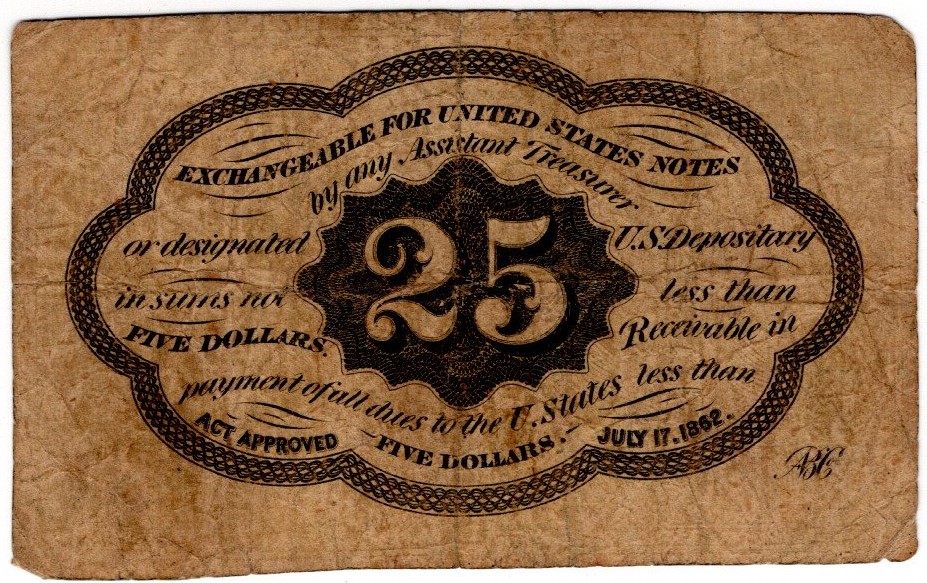 EXCHANGEABLE FOR UNITED STATES NOTES
by any Assistant Treasurer
or designated U.S. Depositary
in sums not less than
FIVE DOLLARS. Receivable in
payment of all dues to the U. States less than
FIVE DOLLARS.
ACT APPROVED JULY 17. 1862.
25
ABC